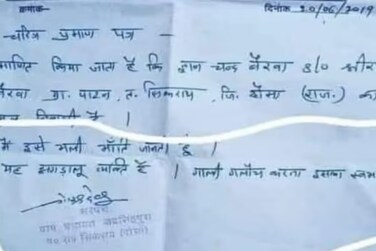 क्रमांक- दिनांक 20/06/2019
चरित्र प्रमाण पत्र -
माणित किया जाता है कि ज्ञान चन्द बैरवा S/o श्री
बैरवा ग्रा. पाटन, त. सिकराय, जि. दौसा (राज.) का
निवासी है ।
मैं इसे भली भाँति जानता हूँ ।
यह झगड़ालू व्यक्ति है । गाली गलौच करना इसका स्वभ
सरपंच
ग्राम पंचायत
पं० स० सिकराय (दौसा)